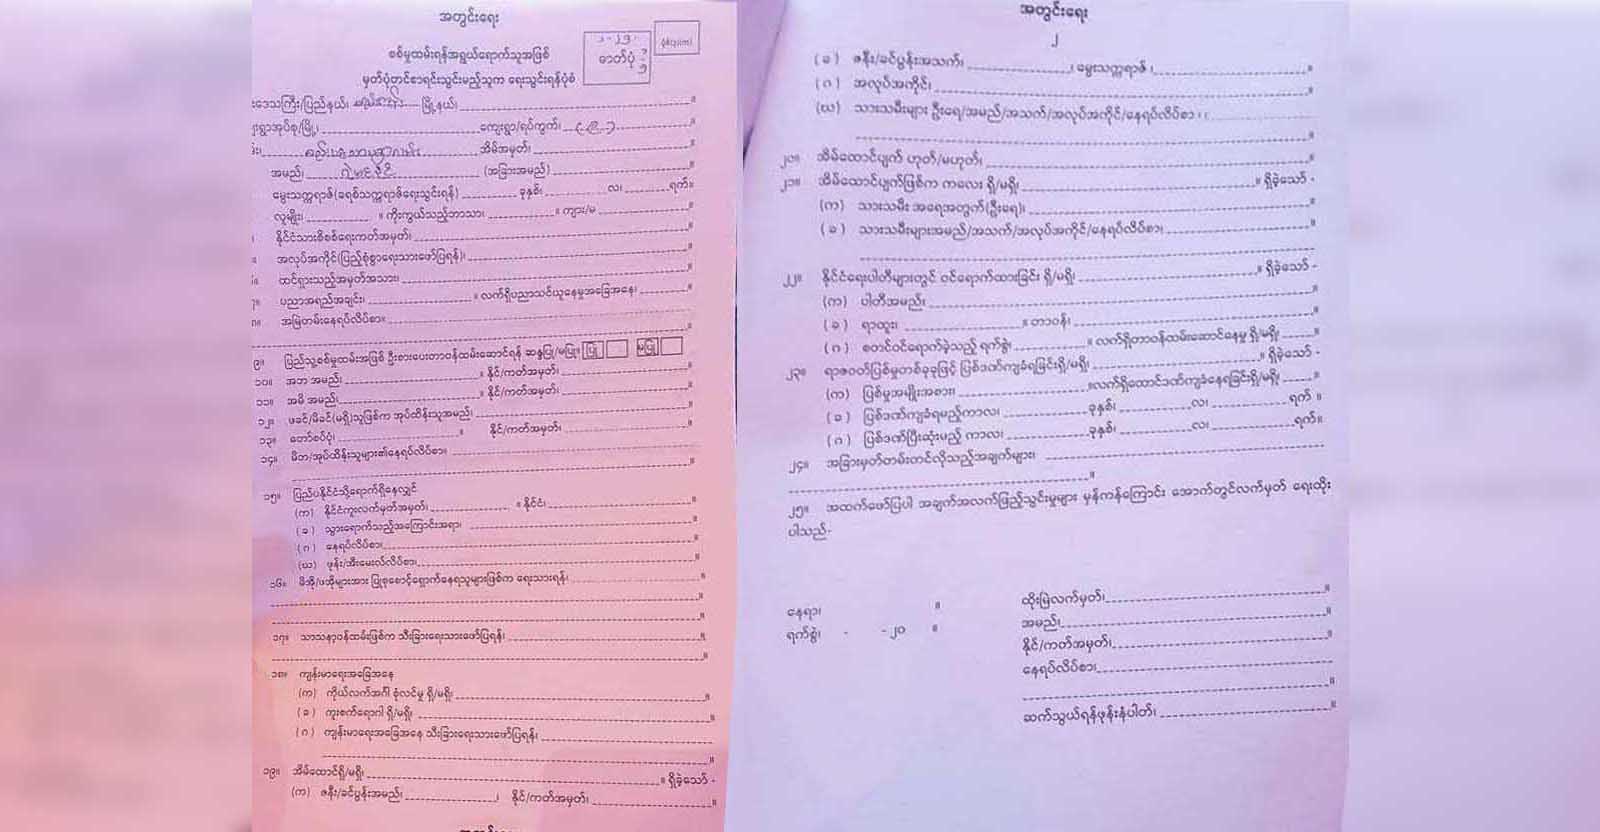 အတွင်းရေး
စစ်မှုထမ်းရန်အရွယ်ရောက်သူအဖြစ်
မှတ်ပုံတင်စာရင်းသွင်းမည့်သူက ရေးသွင်းရန်ပုံစံ
ဓာတ်ပုံ
ဒေသကြီး/ပြည်နယ်၊ မြို့နယ်၊ ။
ကျေးရွာ/ရပ်ကွက်၊ ။
အိမ်အမှတ်၊ ။
အမည်၊ (အခြားအမည်) ။
မွေးသက္ကရာဇ်(ခရစ်သက္ကရာဇ်ရေးသွင်းရန်) ခုနှစ်၊ လ၊ ရက်။
လူမျိုး၊ ။ ကိုးကွယ်သည့်ဘာသာ၊ ။ ကျား/မ ။
နိုင်ငံသားစိစစ်ရေးကတ်အမှတ်၊ ။
အလုပ်အကိုင်(ပြည့်စုံစွာရေးသားဖော်ပြရန်)၊ ။
ထင်ရှားသည့်အမှတ်အသား၊ ။
ပညာအရည်အချင်း၊ ။ လက်ရှိပညာသင်ယူနေမှုအခြေအနေ၊ ။
အမြဲတမ်းနေရပ်လိပ်စာ။
။
၉။ ပြည်သူ့စစ်မှုထမ်းအဖြစ် ဦးစားပေးတာဝန်ထမ်းဆောင်ရန် ဆန္ဒပြု/မပြု။ ပြု မပြု
၁၀။ အဘ အမည်၊ ။ နိုင်/ကတ်အမှတ်၊ ။
၁၁။ အမိ အမည်၊ ။ နိုင်/ကတ်အမှတ်၊ ။
၁၂။ ဖခင်/မိခင်(မရှိ)သူဖြစ်က အုပ်ထိန်းသူအမည်၊ ။
၁၃။ တော်စပ်ပုံ၊ ။ နိုင်/ကတ်အမှတ်၊ ။
၁၄။ မိဘ/အုပ်ထိန်းသူများ၏နေရပ်လိပ်စာ။
။
၁၅။ ပြည်ပနိုင်ငံသို့ရောက်ရှိနေလျှင်
(က) နိုင်ငံကူးလက်မှတ်အမှတ်၊ ။ နိုင်ငံ၊ ။
(ခ) သွားရောက်သည့်အကြောင်းအရာ၊ ။
(ဂ) နေရပ်လိပ်စာ၊ ။
(ဃ) ဖုန်း/အီးမေးလ်လိပ်စာ၊ ။
၁၆။ မိအို/ဖအိုများအား ပြုစုစောင့်ရှောက်နေရသူများဖြစ်က ရေးသားရန်၊ ။
။
။
၁၇။ သာသနာ့ဝန်ထမ်းဖြစ်က သီးခြားရေးသားဖော်ပြရန်၊ ။
။
၁၈။ ကျန်းမာရေးအခြေအနေ
(က) ကိုယ်လက်အင်္ဂါ စုံလင်မှု ရှိ/မရှိ၊ ။
(ခ) ကူးစက်ရောဂါ ရှိ/မရှိ၊ ။
(ဂ) ကျန်းမာရေးအခြေအနေ သီးခြားရေးသားဖော်ပြရန်၊
။
၁၉။ အိမ်ထောင်ရှိ/မရှိ၊ ။ ရှိခဲ့သော် -
(က) ဇနီး/ခင်ပွန်းအမည်၊ ၊ နိုင်/ကတ်အမှတ်၊ ။
အတွင်းရေး
၂
(ခ) ဇနီး/ခင်ပွန်းအသက်၊ ၊ မွေးသက္ကရာဇ်၊ ။
(ဂ) အလုပ်အကိုင်၊ ။
(ဃ) သားသမီးများ ဦးရေ/အမည်/အသက်/အလုပ်အကိုင်/နေရပ်လိပ်စာ
။
၂၀။ အိမ်ထောင်ပျက် ဟုတ်/မဟုတ်၊ ။
၂၁။ အိမ်ထောင်ပျက်ဖြစ်က ကလေး ရှိ/မရှိ၊ ။ ရှိခဲ့သော် -
(က) သားသမီး အရေအတွက်(ဦးရေ)၊ ။
(ခ) သားသမီးများအမည်/အသက်/အလုပ်အကိုင်/နေရပ်လိပ်စာ၊ ။
၂၂။ နိုင်ငံရေးပါတီများတွင် ဝင်ရောက်ထားခြင်း ရှိ/မရှိ၊ ။ ရှိခဲ့သော် -
(က) ပါတီအမည်၊ ။
(ခ) ရာထူး၊ ။ တာဝန်၊ ။
(ဂ) စတင်ဝင်ရောက်ခဲ့သည့် ရက်စွဲ၊ ။ လက်ရှိတာဝန်ထမ်းဆောင်နေမှု ရှိ/မရှိ၊ ။
၂၃။ ရာဇဝတ်ပြစ်မှုတစ်ခုခုဖြင့် ပြစ်ဒဏ်ကျခံရခြင်းရှိ/မရှိ၊ ။ ရှိခဲ့သော် -
(က) ပြစ်မှုအမျိုးအစား၊ ။လက်ရှိထောင်ဒဏ်ကျခံနေရခြင်းရှိ/မရှိ၊ ။
(ခ) ပြစ်ဒဏ်ကျခံရမည့်ကာလ၊ ခုနှစ်၊ လ၊ ရက် ။
(ဂ) ပြစ်ဒဏ်ပြီးဆုံးမည့် ကာလ၊ ခုနှစ်၊ လ၊ ရက်။
၂၄။ အခြားမှတ်တမ်းတင်လိုသည့်အချက်များ၊
။
၂၅။ အထက်ဖော်ပြပါ အချက်အလက်ဖြည့်သွင်းမှုများ မှန်ကန်ကြောင်း အောက်တွင်လက်မှတ် ရေးထိုး
ပါသည်-
နေရာ၊ ။
ရက်စွဲ၊ - -၂၀ ။
ထိုးမြဲလက်မှတ်၊ ။
အမည်၊ ။
နိုင်/ကတ်အမှတ်၊ ။
နေရပ်လိပ်စာ၊
။
ဆက်သွယ်ရန်ဖုန်းနံပါတ်၊ ။